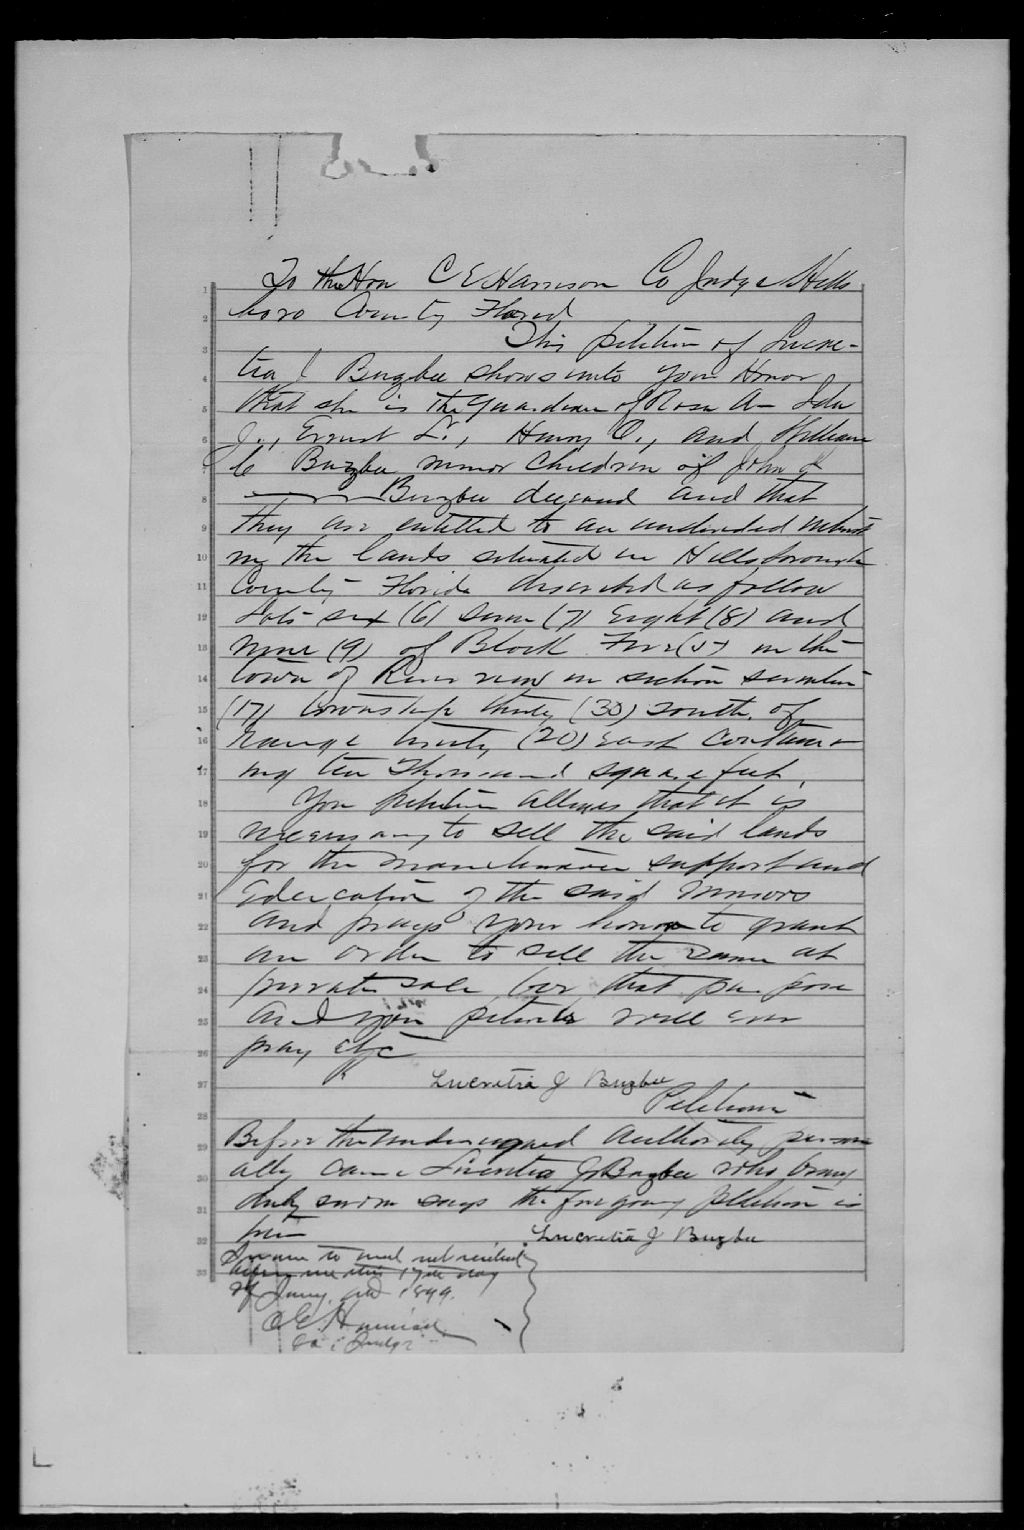 To the Hon C E Harrison Co Judge Hills
boro County Florid
This petition of Lucre-
tia J Bugbee shows unto your Honor
that she is the guardian of Rosa A- Ida
J., Ernest L., Henry O., and William
C Bugbee minor children of John
Bugbee deceased and that
they are entitled to an undivided interest
in the lands situated in Hillsborough
County Florida described as follow
Lots six (6) seven (7) Eight (8) and
Nine (9) of Block Five (5) in the
town of River view in section seventeen
(17) township thirty (30) south of
range twenty (20) East contain-
ing ten Thousand square feet.
Your petition alleges that it is
necessary to sell the said lands
for the maintenance support and
Education of the said Minors
and prays your honor to grant
an order to sell the same at
private sale for that purpose
And your petitioner will ever
pray etc
Lucretia J Bugbee
Petitioner
Before the undersigned authority person
ally came Lucretia J Bugbee who being
duly sworn says the foregoing petition is
true
Lucretia J Bugbee
Sworn to and subscribed
before me this 17th day
of Jany. AD 1899.
C E Harrison
Co Judge
1
2
3
4
5
6
7
8
9
10
11
12
13
14
15
16
17
18
19
20
21
22
23
24
25
26
27
28
29
30
31
32
33